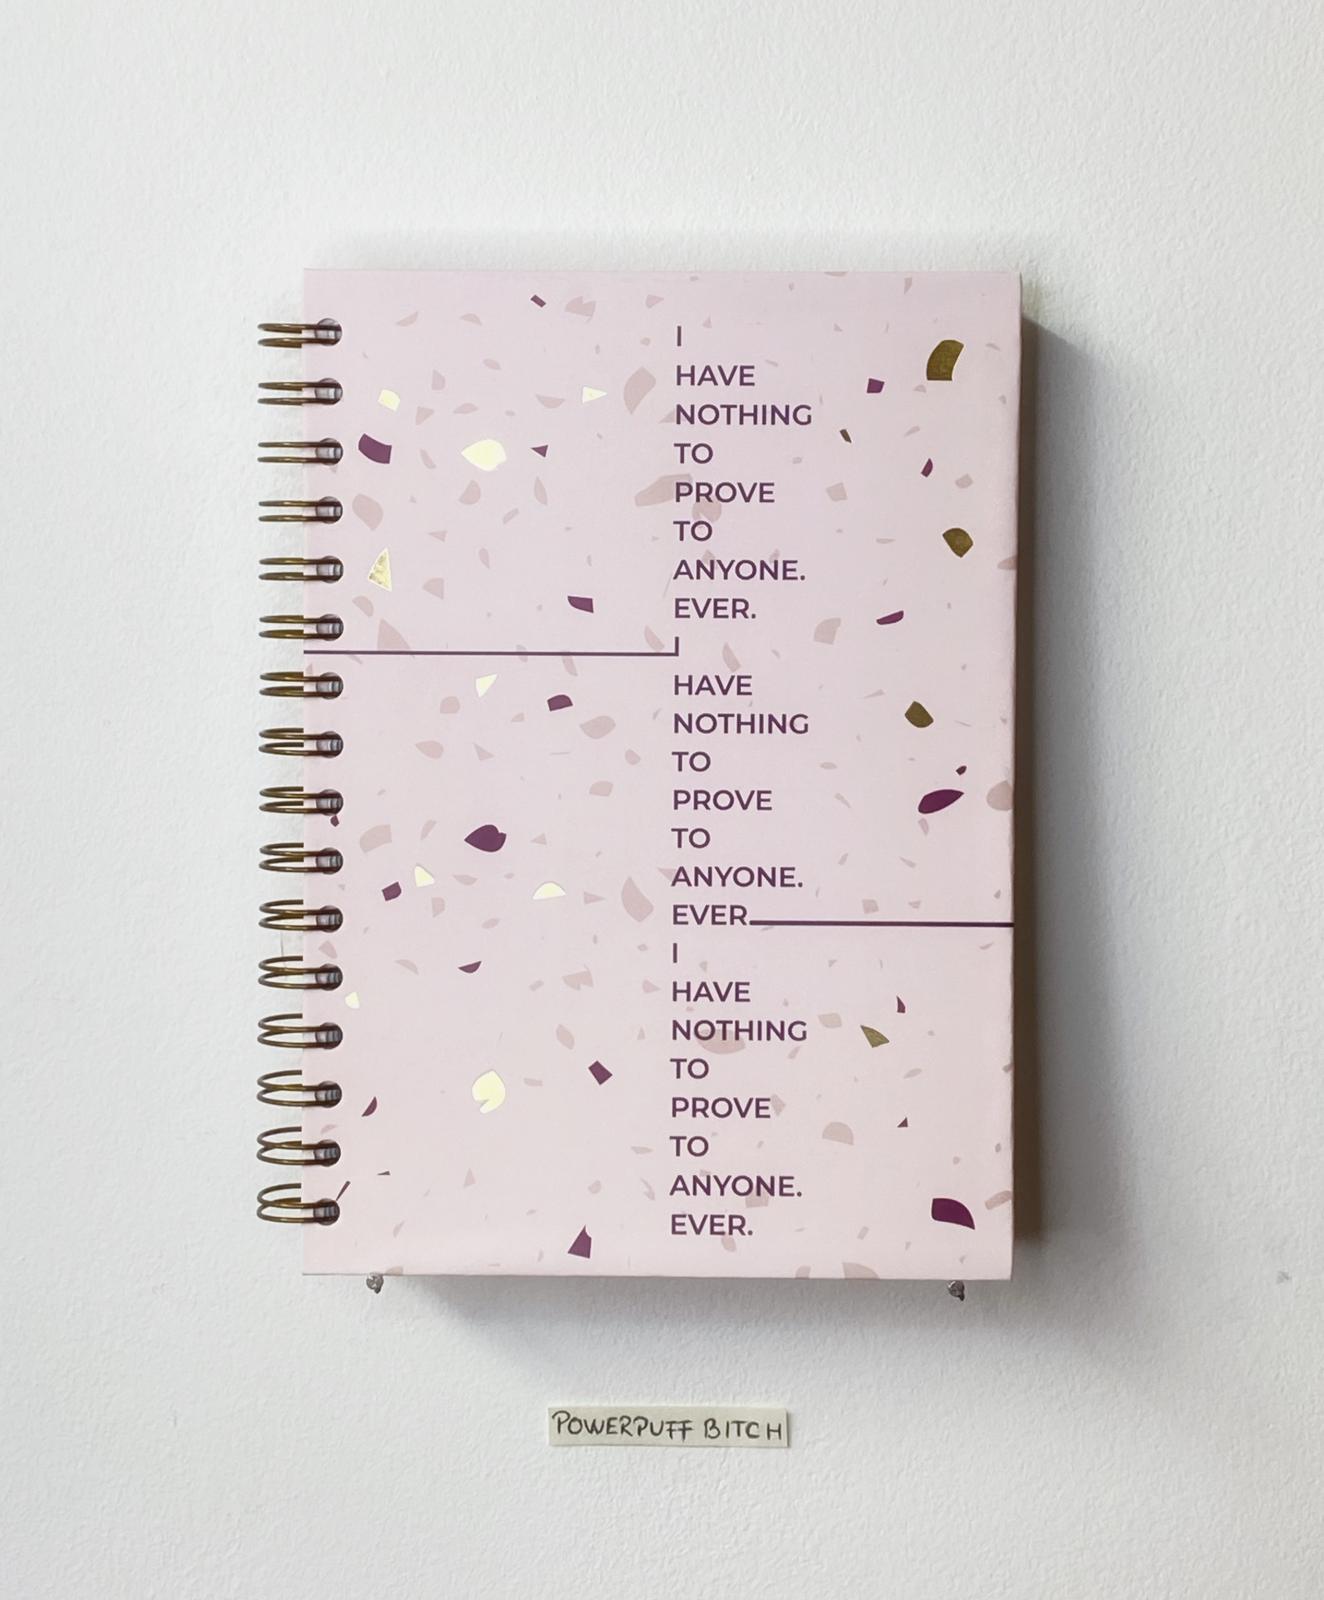 I
HAVE
NOTHING
TO
PROVE
TO
ANYONE.
EVER.
I
HAVE
NOTHING
TO
PROVE
TO
ANYONE.
EVER.
I
HAVE
NOTHING
TO
PROVE
TO
ANYONE.
EVER.
POWERPUFF BITCH